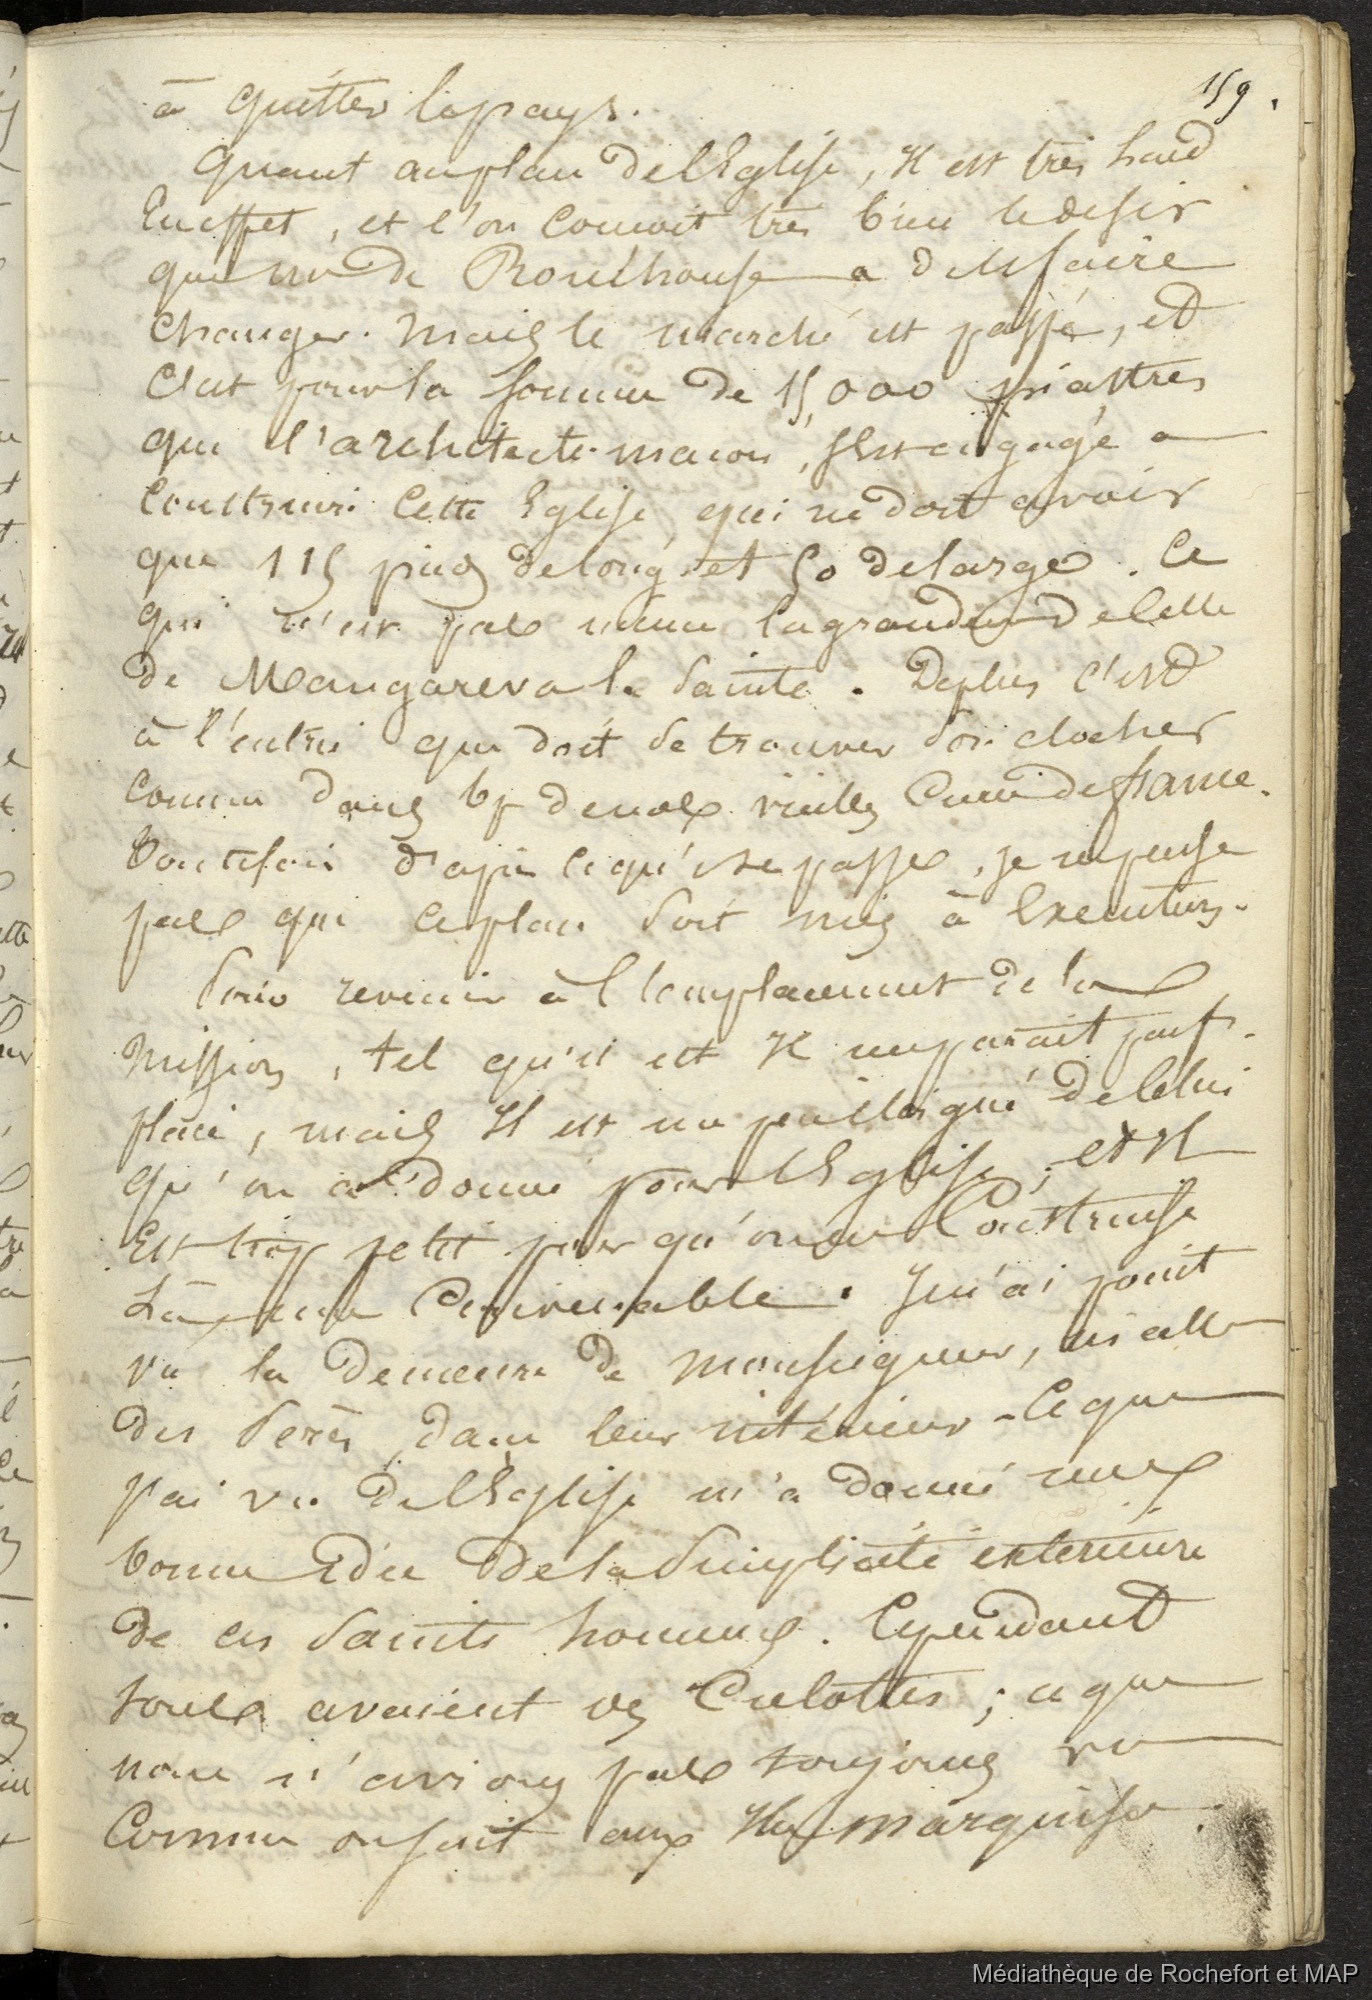 159.
à quitter lepays.
Quant auplan de l'Eglise, Il est très haud
Eneffet, et l'on concoit très bien ledesir
que mr de Rouchouse a delefaire
changer. mais le marché est passé, et
c'est pour la somme de 15,000 piastres
que l'architecte macon, s'est engagé a
construire cette Eglise, qui nedoit avoir
que 115 pieds delong et 50 delarge. Ce
qui n'est pas même lagrandeur decelle
de Mangareva la sainte. Deplus c'est
à l'entrée que doit se trouver son clocher
comme dans denos vieilles Cures defrance.
toutefois d'après cequi se passe, je nepense
pas que ceplan soit mis à Execution.
Pour revenir à l'emplacement de la
mission, tel qu'il est Il meparait
placé, mais Il est un peu éloigné decelui
qu'on a donné pour l'Eglise, et Il
Est trop petit pour qu'on en Construise
Là une Convenable. Jen'ai point
vu la demeure de monseigneur, ni celle
des Peres, dans leur intérieur. Ceque
j'ai vu de l'Eglise m'a donné une
bonne Idée dela simplicité exterieure
de ces saints hommes. Cependant
tous avaient des Culottes; ceque
nous n'avions pas toujours vu
Comme onsait aux Iles marquises.
Médiathèque de Rochefort et MAP